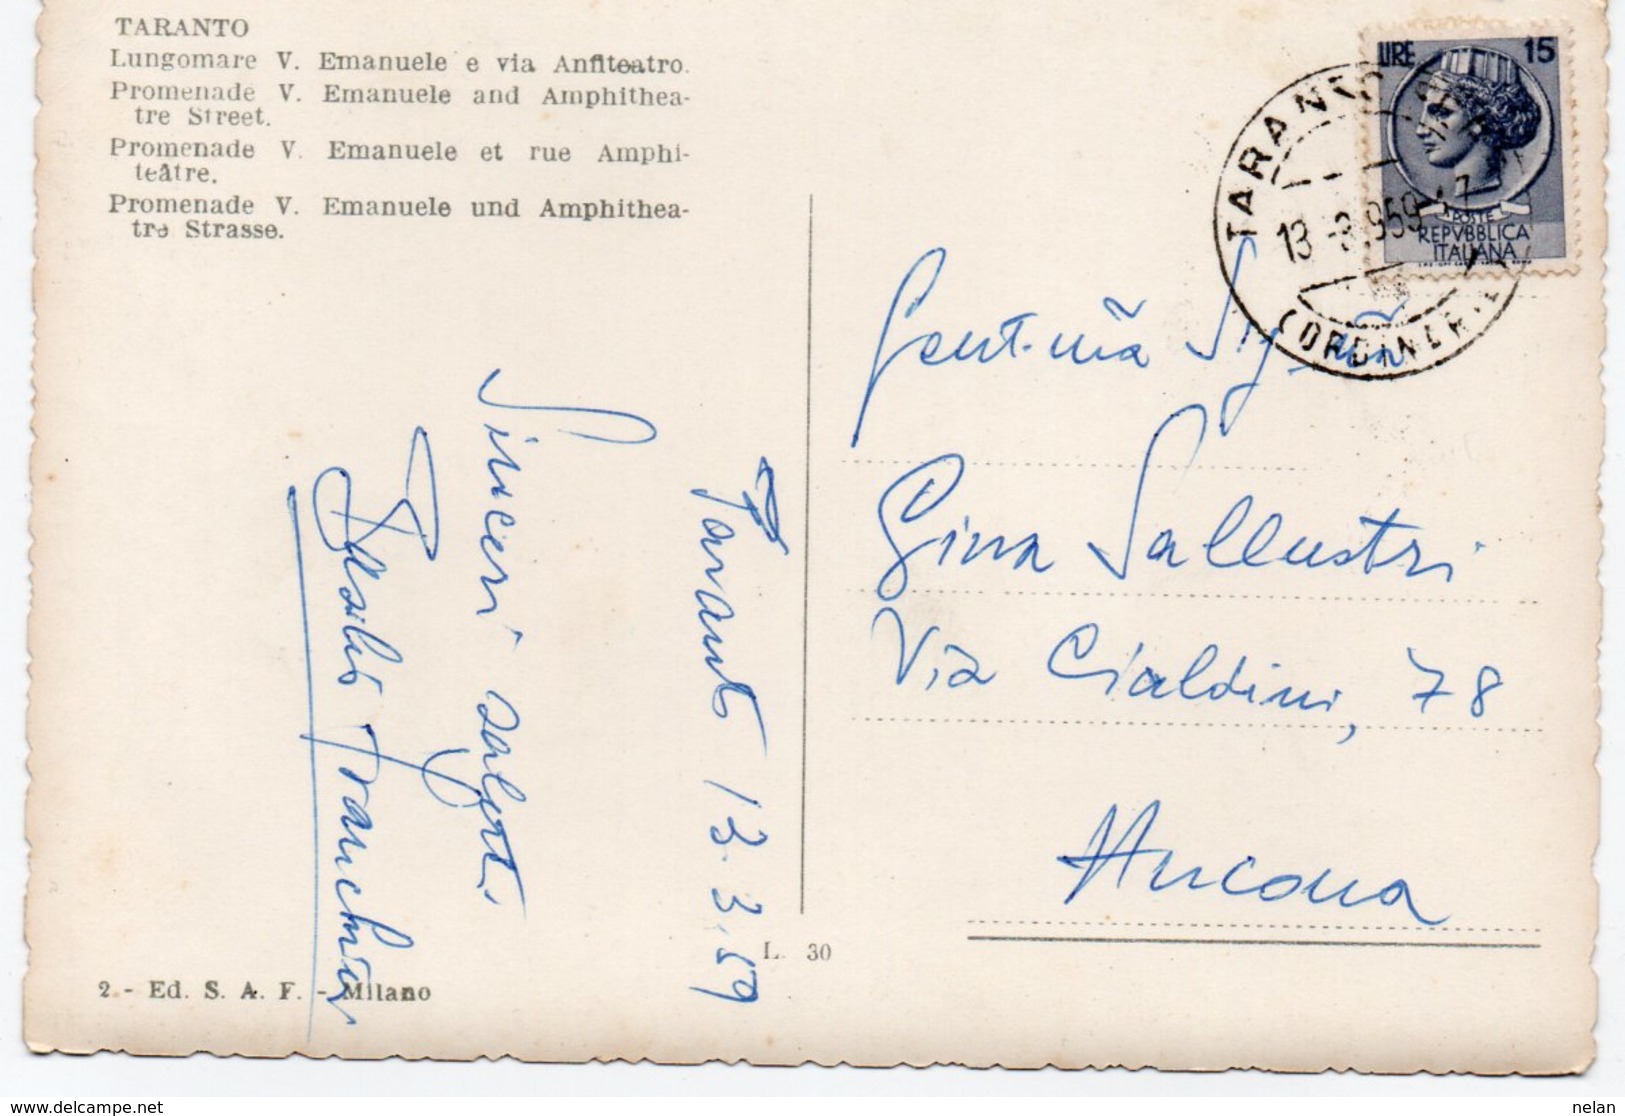 TARANTO
Lungomare V. Emanuele e via Anfiteatro.
Promenade V. Emanuele and Amphithea-
tre Street.
Promenade V. Emanuele et rue Amphi-
teâtre.
Promenade V. Emanuele und Amphithea-
tre Strasse.
LIRE 15
POSTE
REPVBBLICA
ITALIANA
TARANTO
13 -3.959
Gent.ma Sig.na
Gina Sallustri
Via Cialdini, 78
Ancona
Taranto 13.3.59
Sinceri saluti
Franchini
L. 30
2 - Ed. S. A. F. - Milano
delcampe.net
nelan